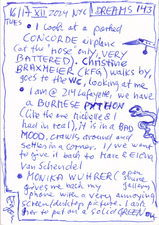 16/17 XII 2024 NYC DREAMS 143
TUES
• I look at a parked
CONCORDE airplane
(at the "nose" only, VERY
BATTERED). Christine
BRAXMEIER (KFG) walks by,
goes to the WC, looking at me
• I am @ 214 Lafayette, we have
a BURMESE PYTHON
(like the one Michelle & I
had in real), it is in a BAD
MOOD, crawls around and
settles in a corner. I/we want
to give it back to Hans & Elena
van Scheindel
• MONIKA WUHRER (open
source
gallery)
gives me back my
phone with a very annoying
screen/desktop picture. I ask
her to put on a solid GREEN